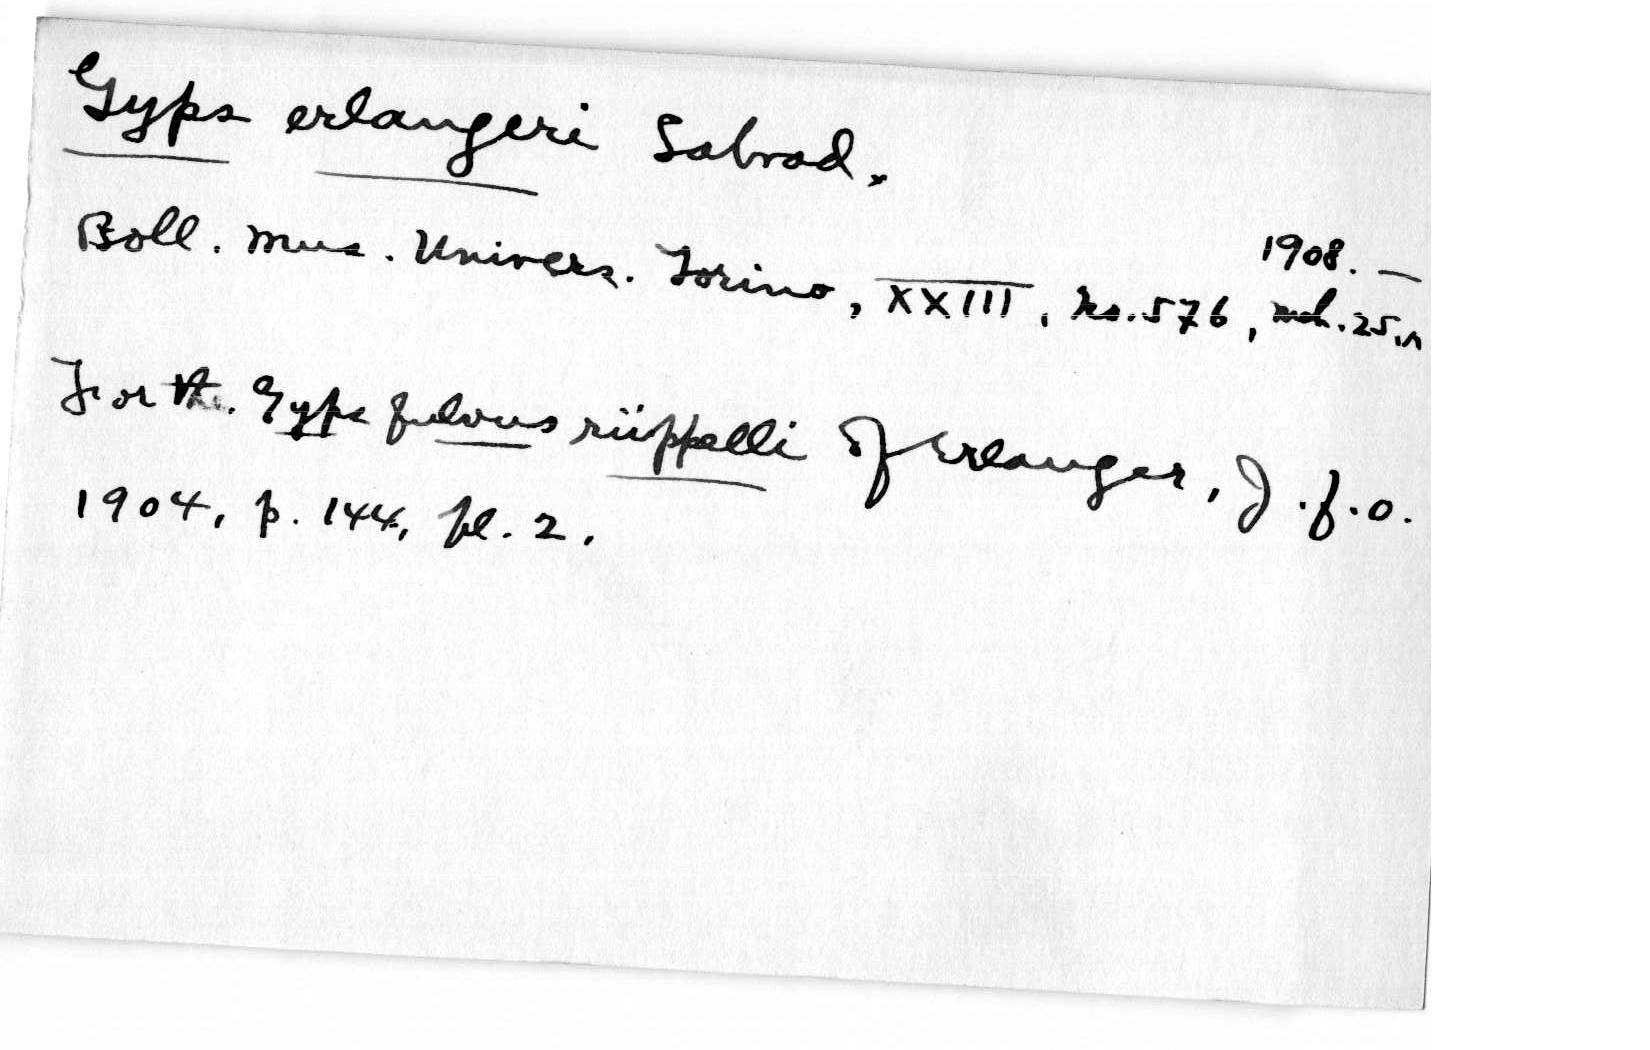 Gyps erlangeri Salvad.
Boll. Mus. Univers. Torino, XXIII, No. 576, mch. 25, 1908. —
For the Gyps fulvus rüppelli of Erlanger, J.f.O.
1904, p. 144, pl. 2.